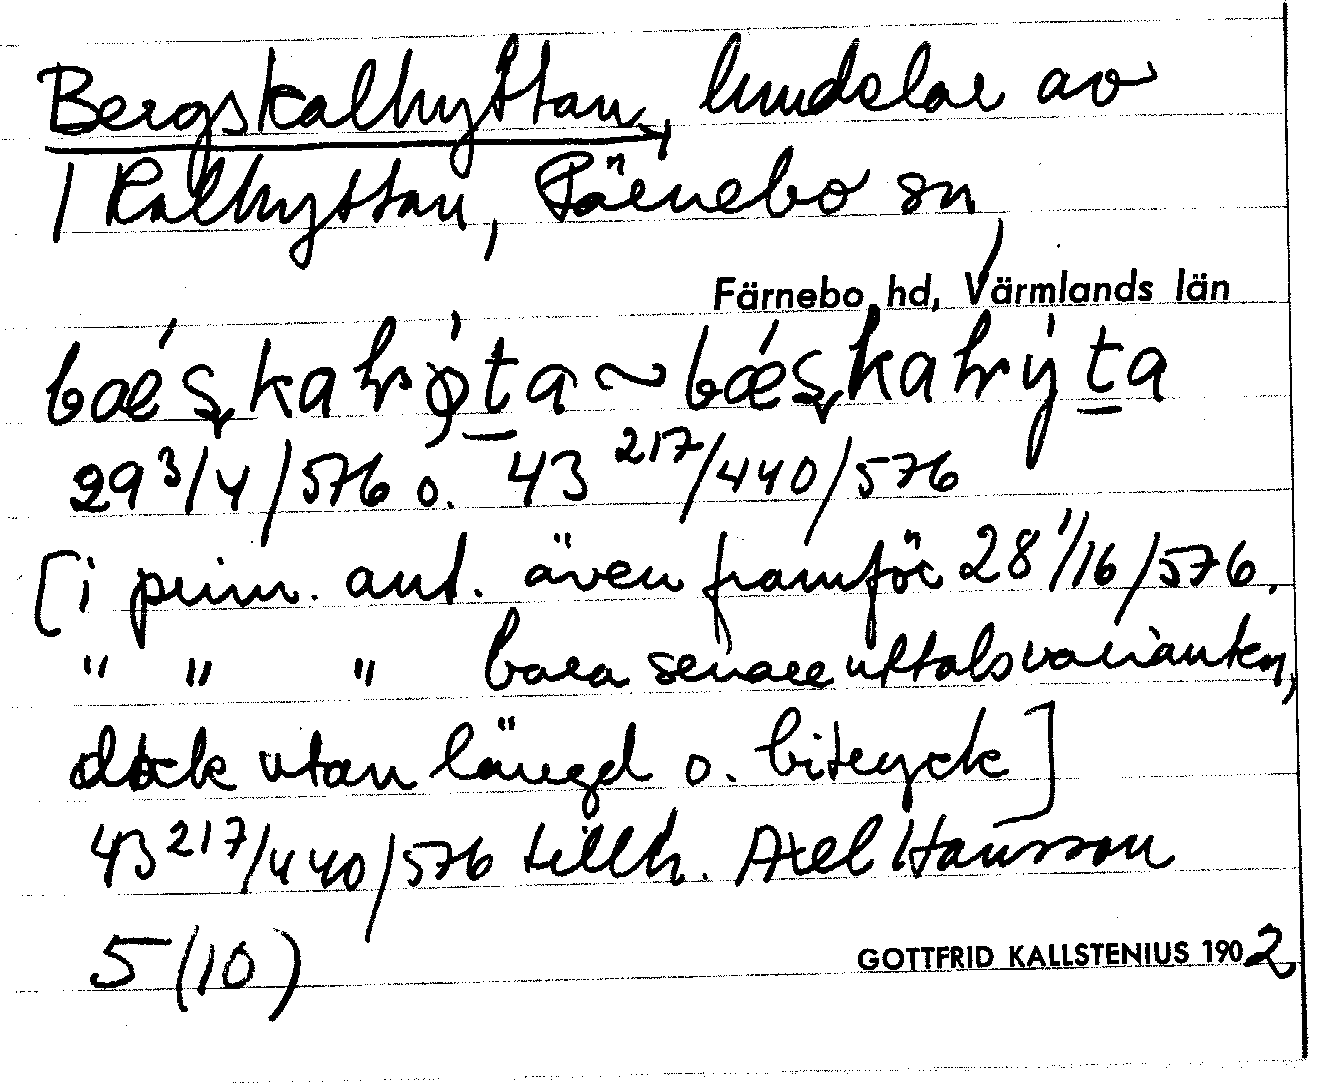 Bergskalhyttan, hmdelar av
1 Kalhyttan, Färnebo sn,
Färnebo hd, Värmlands län
29 3/4/576 o. 43 217/440/576
[i prim. ant. även framför 28 1/16/576.
" " " bara senare uttalsvarianten,
dock utan längd o. bitryck]
43 217/440/576 tillh. Axel Hansson
5 (10)
GOTTFRID KALLSTENIUS 1902